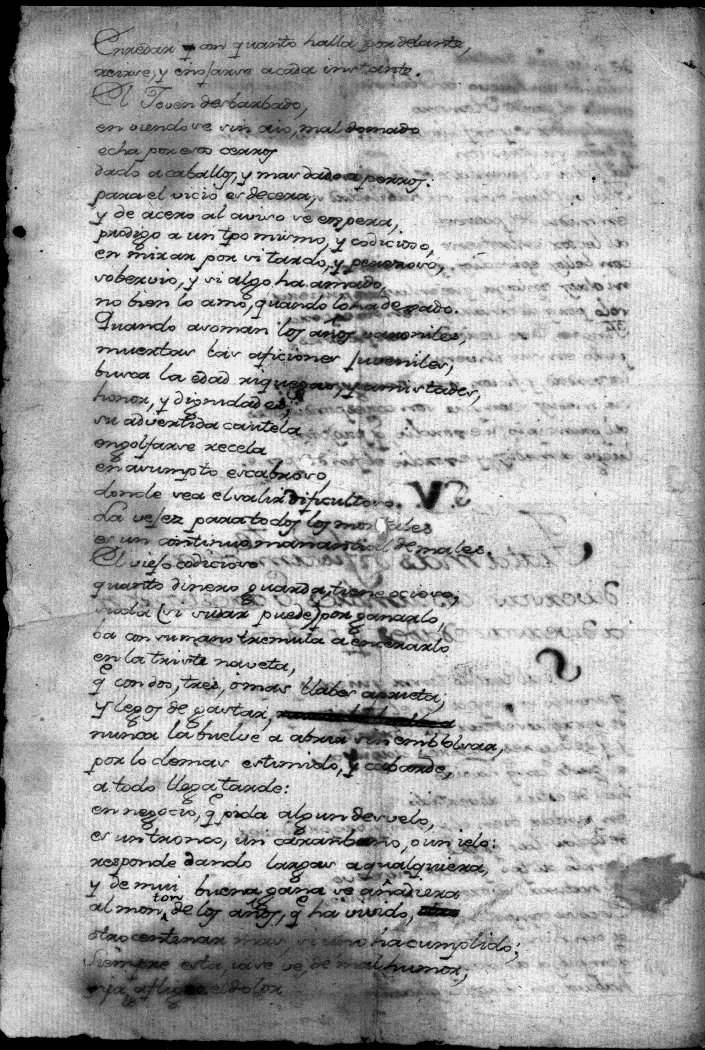 Enredar con quanto halla por delante,
reirse, y enojarse a cada instante.
El Joven desbarbado,
en viendose sin aio, mal domado
echa por esos cerros
dado a caballos, y mas dado a perros.
para el vicio es de cera,
y de acero al aviso se
prodigo a un tpo mismo, y codicioso,
en mirar por si tardo, y perezoso,
sobervio, y si algo ha amado,
no bien lo amó, quando lo ha dejado.
Quando asoman los años varoniles,
muertas las aficiones juveniles,
busca la edad riquezas, y amistades,
honor, y dignidades,
su advertida cautela
engolfarse recela
en asumpto escabroso,
donde vea el salir dificultoso.
La vejez para todos los mortales
es un continuo manantial de males.
El viejo codicioso
quanto dinero guarda, tiene ocioso,
suda (si sudar puede) por ganarlo,
ba con su mano tremula a encerrarlo
en la triste naveta,
q̃ con dos, tres, ó mas llabes aprieta;
y lejos de gastar,
nunca la buelve a abrir sin embolsar,
por lo demas es timido, y cobarde,
a todo llega tarde:
en negocio, q̃ pida algun desvelo,
es un tronco, un carambano, o un ielo:
responde dando largas a qualquiera,
y de mui buena gana se añadiera
al montón de los años, q̃ ha vivido,
otro centenar mas, si uno ha cumplido;
siempre esta, ia se ve, de mal humor,
ya le aflige el dolor